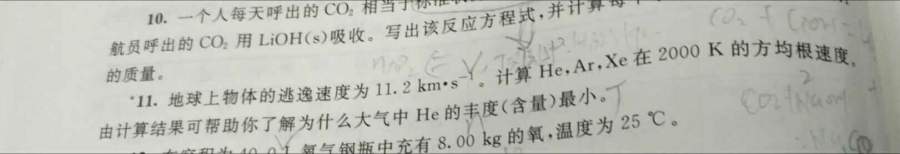 10. 一个人每天呼出的 CO₂ 相当于标准
航员呼出的 CO₂ 用 LiOH(s)吸收。写出该反应方程式，并计算每
的质量。
*11. 地球上物体的逃逸速度为 11.2 km·s⁻¹。计算 He,Ar,Xe 在 2000 K 的方均根速度，
由计算结果可帮助你了解为什么大气中 He 的丰度(含量)最小。
氧气钢瓶中充有 8.00 kg 的氧，温度为 25 ℃。